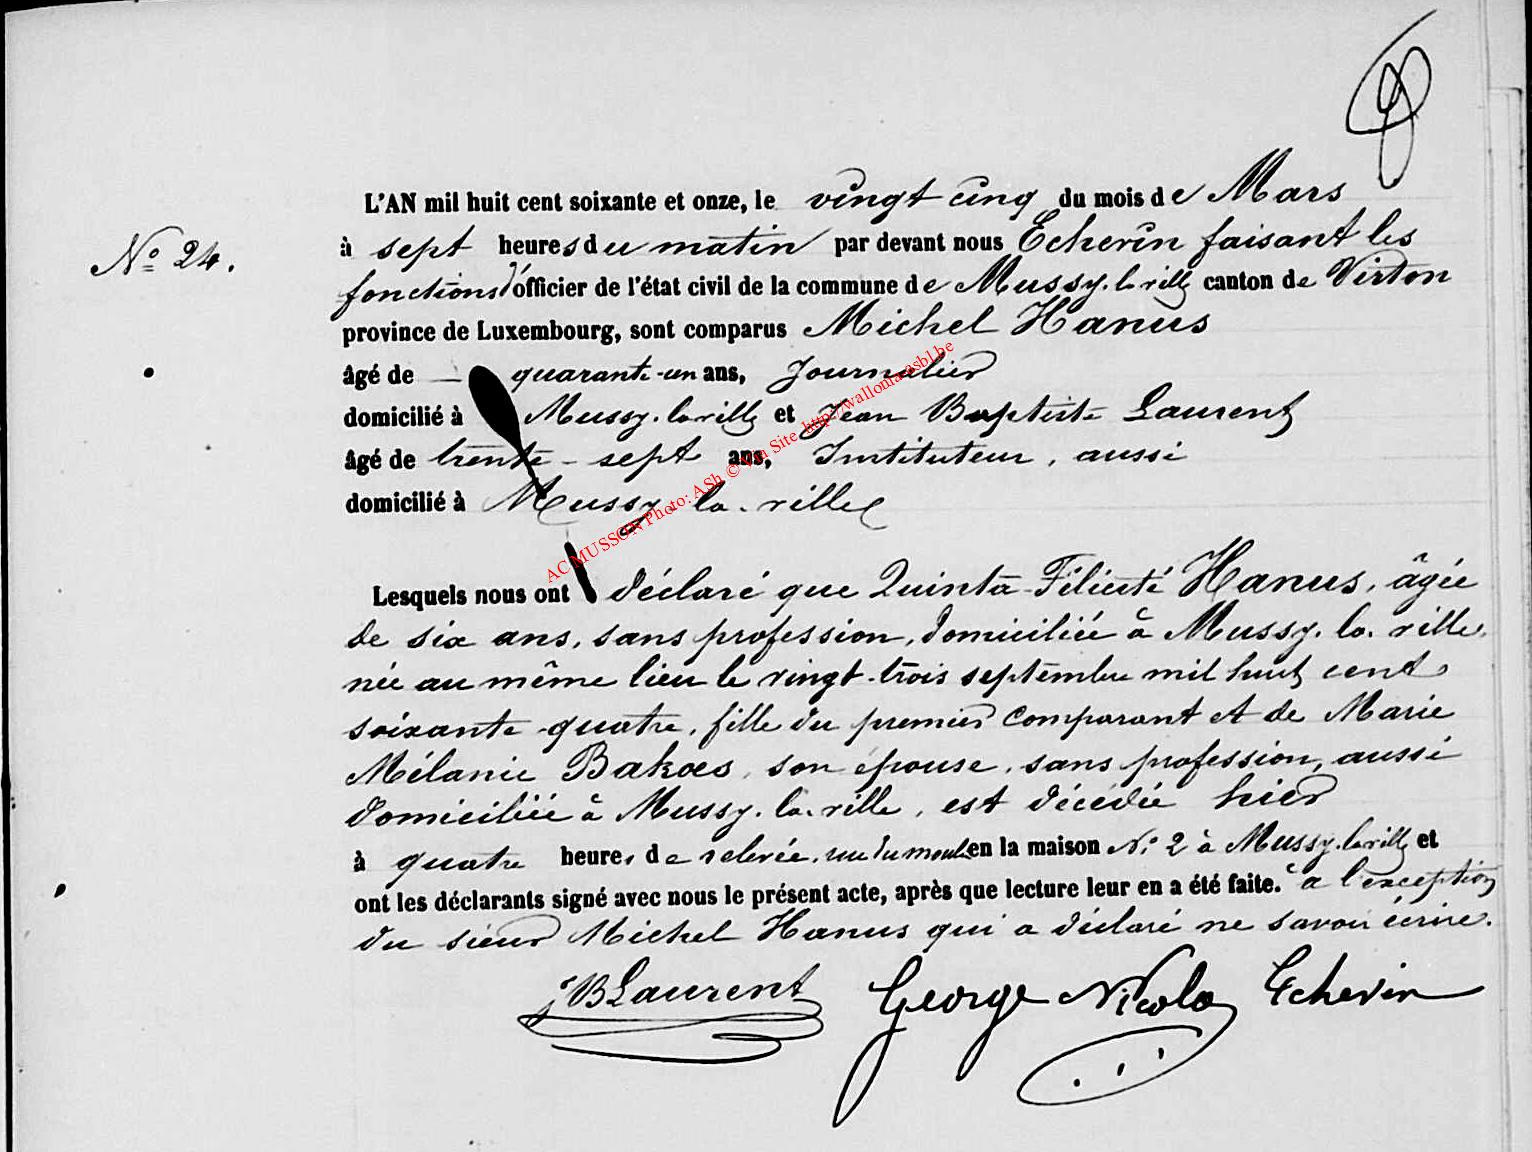 L'AN mil huit cent soixante et onze, le vingt cinq du mois de Mars
No 24.
à sept heures du matin par devant nous Echevin faisant les
fonctions d'officier de l'état civil de la commune de Mussy-la-ville canton de Virton
province de Luxembourg, sont comparus Michel Hanus
âgé de quarante-un ans, Journalier
domicilié à Mussy-la-ville et Jean Baptiste Laurent
âgé de trente-sept ans, Instituteur, aussi
domicilié à Mussy-la-ville
AC MUSSON Photo: ASh © Via Site http://wallonia-asbl.be
Lesquels nous ont déclaré que Quinta-Félicité Hanus, âgée
de six ans, sans profession, domiciliée à Mussy-la-ville,
née au même lieu le vingt-trois septembre mil huit cent
soixante-quatre, fille du premier comparant et de Marie
Mélanie Bakoes, son épouse, sans profession, aussi
domiciliée à Mussy-la-ville, est décédée hier
à quatre heures de relevée, rue du moulin en la maison No 2 à Mussy-la-ville et
ont les déclarants signé avec nous le présent acte, après que lecture leur en a été faite. à l'exception
du sieur Michel Hanus qui a déclaré ne savoir écrire.
JB Laurent George Nicolas Echevin